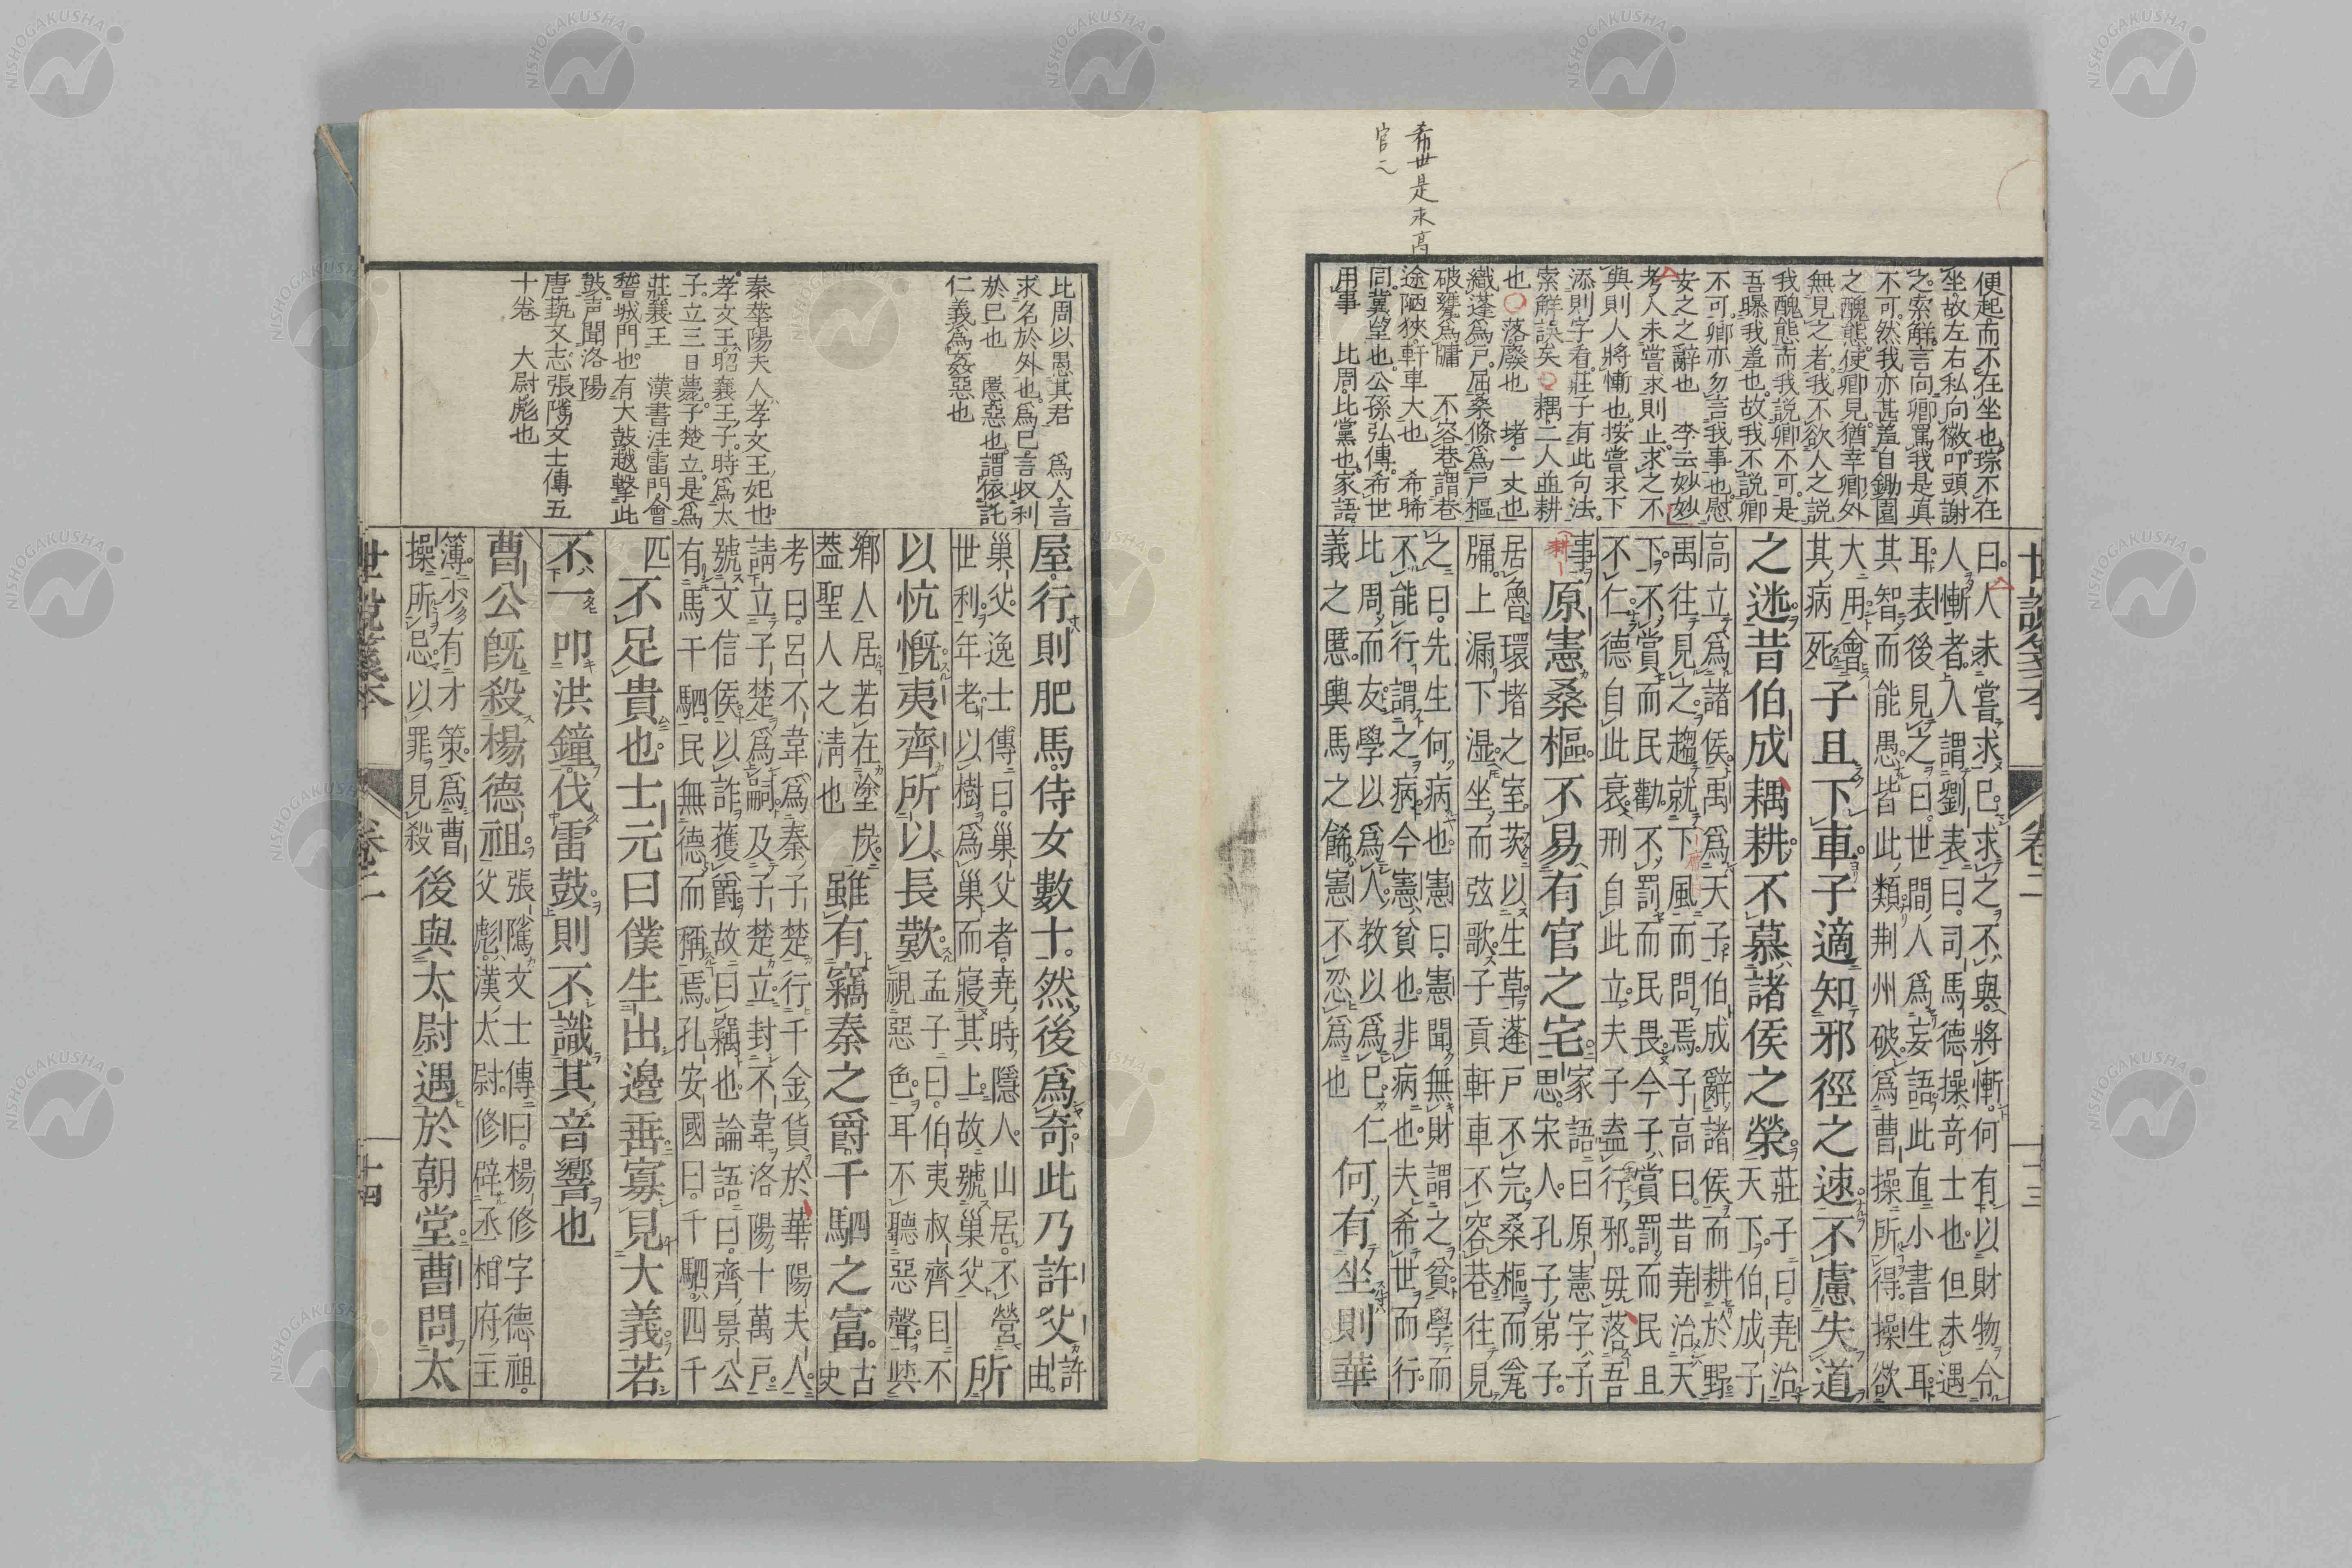 希世是求高
官之
便起而不在坐也琮不在
坐故左右私向徽叩頭謝
之索解言向卿罵我是真
不可然我亦甚羞自鋤園
之醜態使卿見猶幸卿外
無見之者我不欲人之說
我醜態而我說卿不可是
吾曝我羞也故我不說卿
不可卿亦勿言我事也慰
安之之辭也 李云妙妙
考人未嘗求則止求之不
與則人將慚也按嘗求下
添則字看莊子有此句法
索解誤矣○耦二人並耕
也○落廢也 堵一丈也
織蓬為戶屈桑條為戶樞
破甕為牖 不容巷謂巷
途陋狹軒車大也 希晞
同冀望也公孫弘傳希世
用事 比周比黨也家語
曰人未嘗求已求之不與將慚何有以財物令
人慚者人謂劉表曰司馬德操奇士也但未遇
耳表後見之曰世間人為妄語此直小書生耳
其智而能愚皆此類荆州破為曹操所得操欲
大用會
其病死
子且下車子適知邪徑之速不慮失道
之迷昔伯成耦耕不慕諸侯之榮
莊子曰堯治
天下伯成子
高立為諸侯禹為天子伯成辭諸侯而耕於野
禹往見之趨就下風而問焉子高曰昔堯治天
下不賞而民勸不罰而民畏今子賞罰而民且
不仁德自此衰刑自此立夫子盍行邪毋落吾
事
原憲桑樞不易有官之宅
家語曰原憲字子
思宋人孔子弟子
居魯環堵之室茨以生草蓬戶不完桑樞而瓮
牖上漏下濕坐而弦歌子貢軒車不容巷往見
之曰先生何病也憲曰憲聞無財謂之貧學而
不能行謂之病今憲貧也非病也夫希世而行
比周而友學以為人教以為己仁
義之慝輿馬之餙憲不忍為也
何有坐則華
世說箋本
卷二
十三
比周以愚其君 為人言
求名於外也為己言収利
於己也 慝惡也謂依託
仁義為姦惡也
秦華陽夫人孝文王妃也
孝文王昭襄王子時為太
子立三日薨子楚立是為
莊襄王 漢書注雷門會
稽城門也有大鼓越擊此
鼓声聞洛陽
唐藝文志張隲文士傳五
十卷 大尉彪也
屋行則肥馬侍女數十然後為奇此乃許父
許
由
巢父逸士傳曰巢父者堯時隱人山居不營
世利年老以樹為巢而寢其上故號巢父
所
以忼慨夷齊所以長歎
孟子曰伯夷叔齊曰不
視惡色耳不聽惡聲與
鄉人居若在塗炭
蓋聖人之清也
雖有竊秦之爵千駟之富
古
史
考曰呂不韋為秦子楚行千金貨於華陽夫人
請立子楚為嗣及子楚立封不韋洛陽十萬戶
號文信侯以詐獲爵故曰竊也論語曰齊景公
有馬千駟民無德而稱焉孔安國曰千駟四千
匹
不足貴也士元曰僕生出邊垂寡見大義若
不一叩洪鐘伐雷鼓則不識其音響也
曹公既殺楊德祖
張隲文士傳曰楊修字德祖
父彪漢太尉修辟丞相府主
簿少有才策為曹
操所忌以罪見殺
後與太尉遇於朝堂曹問太
世說箋本
卷二
十四